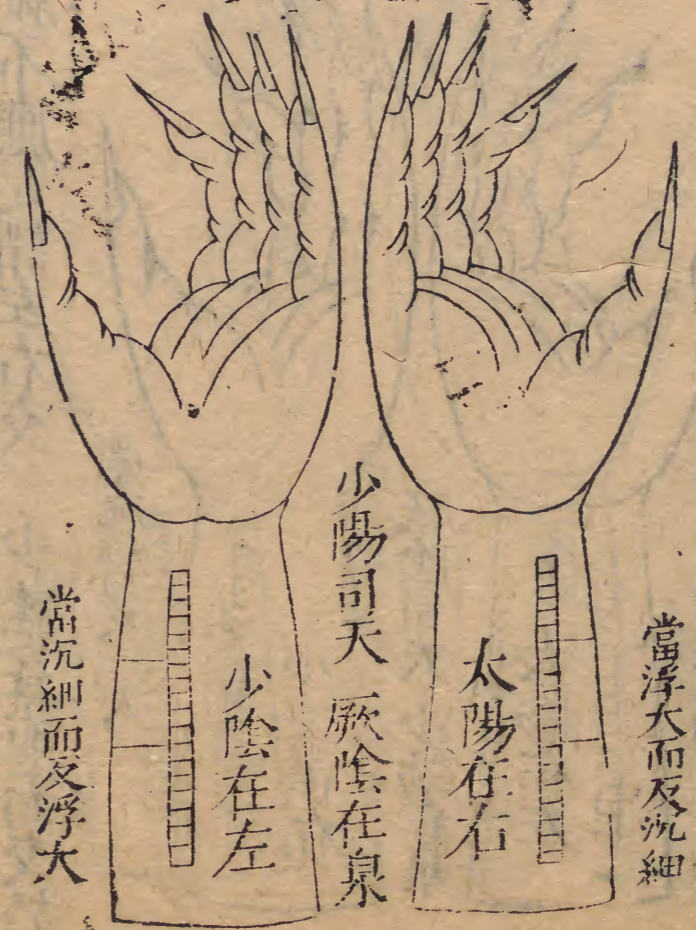 當浮大而反沉細
太陽在右
少陽司天 厥陰在泉
少陰在左
當沉細而反浮大